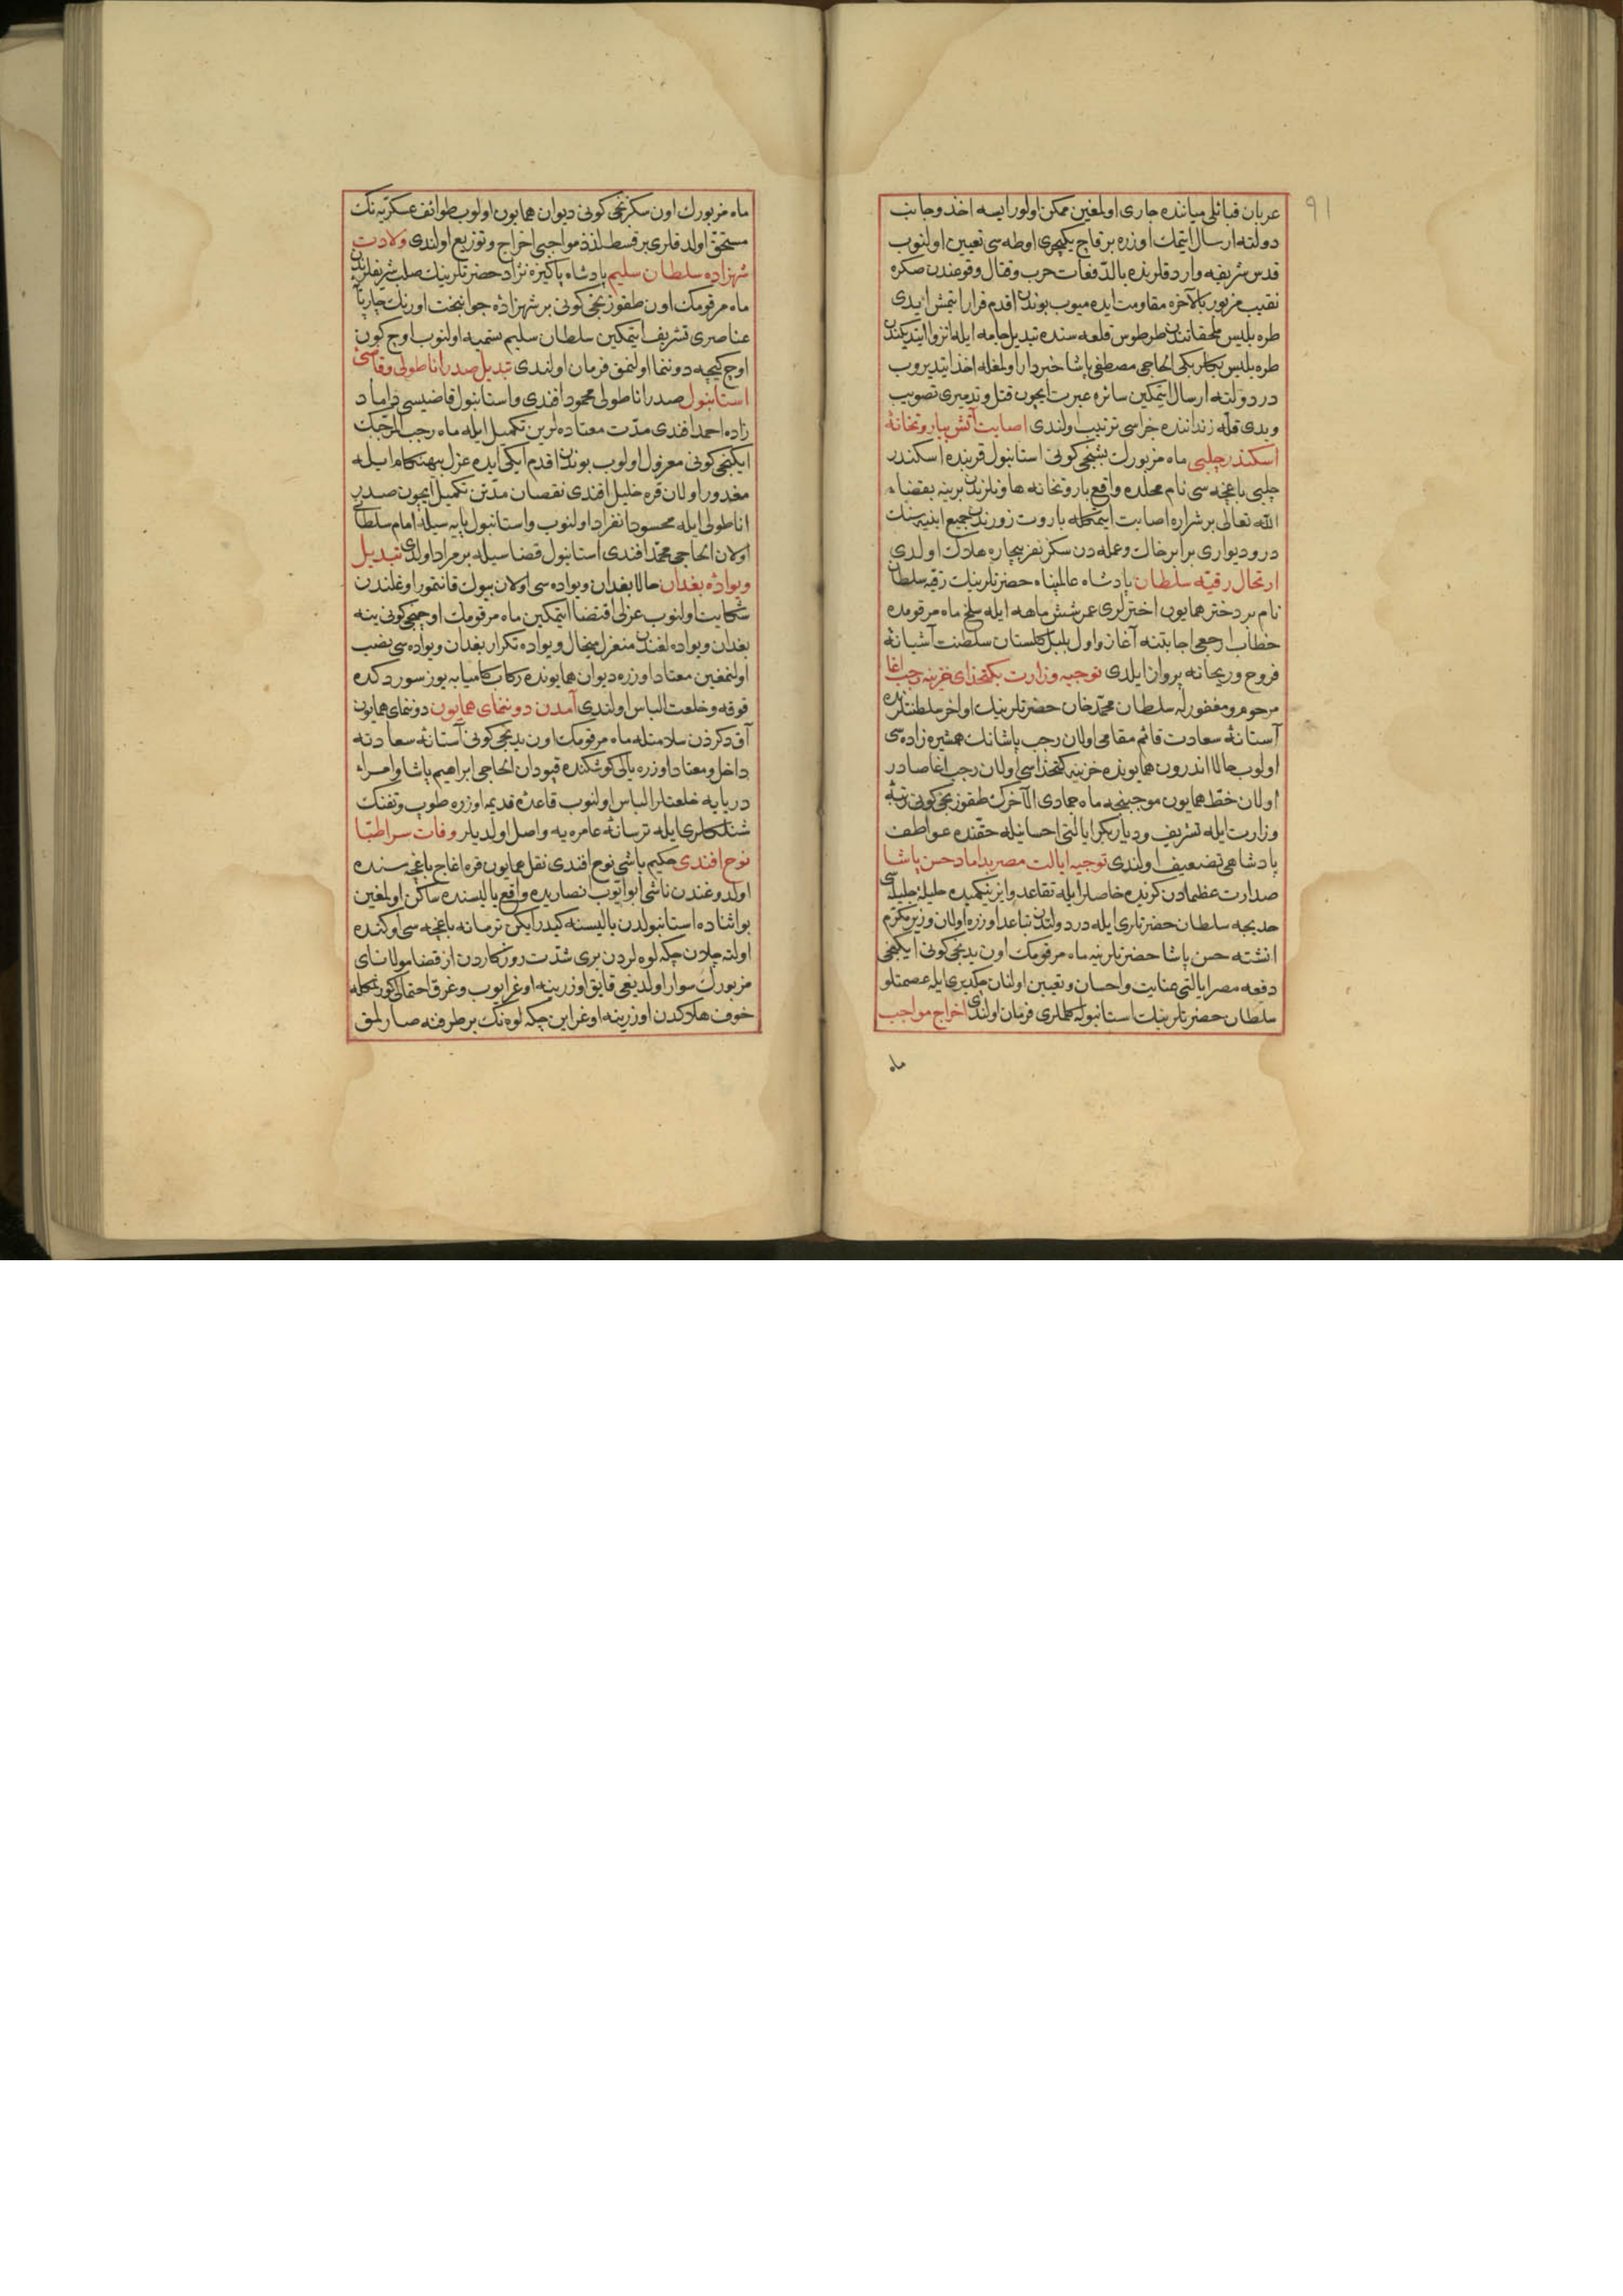 91
عربان قبائلی میاننده جاری اولمغین ممکن اولور ایسه اخذ و جانب
دولته ارسال ایتمك اوزره بر قاچ یکیچری اوطه سی تعیین اولنوب
قدس شریفه وارد قلرنده بالدفعات حرب و قتال وقوعندن صکره
نقیب مزبور بالآخره مقاومت ایده میوب بوندن اقدم فرار ایتمش ایدی
طره بلیس ملحقاتندن طرطوس قلعه سنده تبدیل جامه ایله انزوا ایتدیکندن
طره بلیس بکلربکی الحاجی مصطفی پاشا خبردار اولمغله اخذ ایتدیروب
در دولته ارسال ایتمکین سائره عبرت ایچون قتل و تدمیری تصویب
ویدی قله زنداننده جزاسی ترتیب اولندی اصابت آتش بباروتخانهٔ
اسکندر چلبی ماه مزبورك بشنجی کونی استانبول قربنده اسکندر
چلبی باغچه سی نام محلده واقع باروتخانه هاونلرندن برینه بقضاء
الله تعالی بر شراره اصابت ایتمکله باروت زورندن جمیع ابنیه سنك
در و دیواری برابر خاك وعمله دن سکز نفر بیچاره هلاك اولدی
ارتحال رقیه سلطان پادشاه عالمپناه حضرتلرینك رقیه سلطان
نام بر دختر همایون اختر لری عمر شش ماهه ایله سلخ ماه مرقومده
خطاب ارجعی اجابتنه آغاز و اول بلبل کلستان سلطنت آشیانهٔ
فروح و ریحانه پرواز ایلدی توجیه وزارت بکتخدای خزینه رجب اغا
مرحوم و مغفور له سلطان محمد خان حضرتلرینك اواخر سلطنتلرنده
آستانهٔ سعادت قائم مقامی اولان رجب پاشانك همشیره زاده سی
اولوب حالا اندرون همایونده خزینه کتخداسی اولان رجب اغا صادر
اولان خط همایون موجبنجه ماه جمادی الآخرك طقوزنجی کونی رتبهٔ
وزارت ایله تشریف و دیاربکر ایالتی احسانیله حقنده عواطف
پادشاهی تضعیف اولندی توجیه ایالت مصر بداماد حسن پاشا
صدارت عظمادن کرنده خاصلر ایله تقاعد و ازنیکمیده حلیلهٔ جلیله سی
خدیجه سلطان حضرتلری ایله در دولتدن تباعد اوزره اولان وزیر مکرم
انشته حسن پاشا حضرتلرینه ماه مرقومك اون یدنجی کونی ایکنجی
دفعه مصر ایالتی عنایت و احسان و تعیین اولنان چکدیری ایله عصمتلو
سلطان حضرتلرینك استانبوله کلملری فرمان اولندی اخراج مواجب
ماه
ماه مزبورك اون سکزنجی کونی دیوان همایون اولوب طوائف عسکریه نك
مستحق اولدقلری بر قسط لذذ مواجبی اخراج و توزیع اولندی ولادت
شهزاده سلطان سلیم پادشاه پاکیزه نژاد حضرتلرینك صلب شریفلرندن
ماه مرقومك اون طقوزنجی کونی بر شهزادهٔ جوانبخت اورنك چارپای
عناصری تشریف ایتمکین سلطان سلیم تسمیه اولنوب اوچ کون
اوچ کیجه دوننما اولنمق فرمان اولندی تبدیل صدر اناطولی و قاضی
استانبول صدر اناطولی محمود افندی و استانبول قاضیسی داماد
زاده احمد افندی مدت معتاده لرین تکمیل ایله ماه رجب المرجبك
ایکنجی کونی معزول اولوب بوندن اقدم ایکی ایده عزل بیهنکام ایله
مغدور اولان قره خلیل افندی نقصان مدتن تکمیل ایچون صدر
اناطولی ایله محسود انفراد اولنوب و استانبول پایه سیله امام سلطانی
اولان الحاجی محمد افندی استانبول قضاسیله برمراد اولدی تبدیل
ویوادهٔ بغدان حالا بغدان ویواده سی اولان بیوك قانتمور اوغلندن
شکایت اولنوب عزلی اقتضا ایتمکین ماه مرقومك اوچنجی کونی ینه
بغدان ویواده لغندن منعزل میخال ویواده تکرار بغدان ویواده سی نصب
اولنمغین معتاد اوزره دیوان همایونده رکاب کامیابه یوز سوردکده
قوقه و خلعت الباس اولندی آمدن دوننمای همایون دوننمای همایون
آق دکزدن سلامتله ماه مرقومك اون یدنجی کونی آستانهٔ سعادته
داخل و معتاد اوزره یالی کوشکنده قپودان الحاجی ابراهیم پاشا و امراء
دریایه خلعتلر الباس اولنوب قاعدهٔ قدیمه اوزره طوپ و تفنك
شنلکلری ایله ترسانهٔ عامره یه واصل اولدیلر وفات سر اطبا
نوح افندی حکیم باشی نوح افندی نقل همایون قره اغاج باغچه سنده
اولدوغندن ناشی ابو ایوب انصاریده واقع یالیسنده ساکن اولمغین
بو اثناده استانبولدن یالیسنه کیدر ایکن ترسانه باغچه سی اوکنده
اولته چلان چکه لوه لردن بری شدت روزکاردن از قضا مولانای
مزبورك سوار اولدیغی قایق اوزرینه اوغرایوب و غرق احتمالی کورنمکله
خوف هلاکدن اوزرینه اوغراین چکه لوه نك بر طرفنه صارلمق